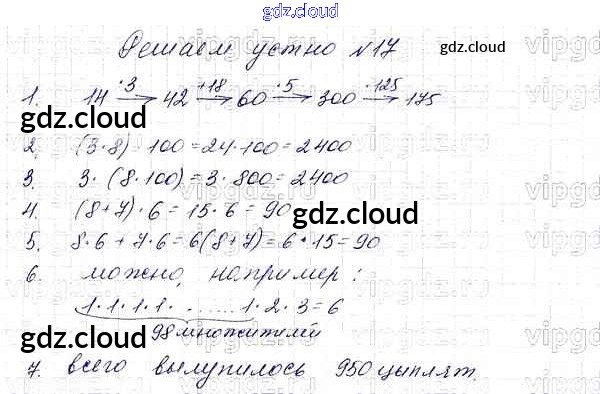 gdz.cloud
Решаем устно №17 gdz.cloud
1. 14 ·3→ 42 +18→ 60 ·5→ 300 ·125→ 175
gdz.cloud gdz.cloud
2. (3·8)·100=24·100=2400
3. 3·(8·100)=3·800=2400
4. (8+7)·6=15·6=90 gdz.cloud
5. 8·6+7·6=6(8+7)=6·15=90
6. можно, например:
1·1·1·1· ....... 1·2·3=6
gdz.cloud 98 множителей gdz.cloud
7. всего вылупилось 950 цыплят.